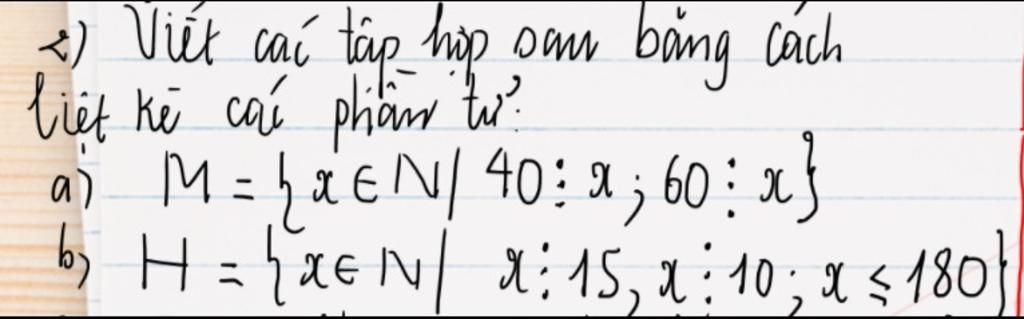 2) Viết các tập hợp sau bằng cách
liệt kê các phần tử:
a) M = {x ∈ N | 40 ⋮ x ; 60 ⋮ x}
b) H = {x ∈ N | x ⋮ 15, x ⋮ 10 ; x ≤ 180}